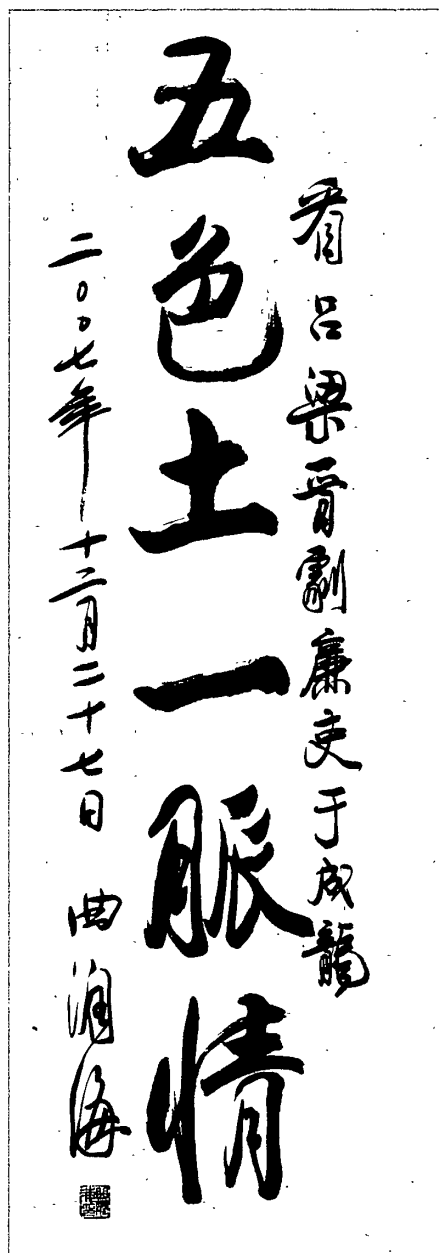 看吕梁晋劇廉吏于成龍
五色土一脈情
二〇〇七年十二月二十七日 曲润海